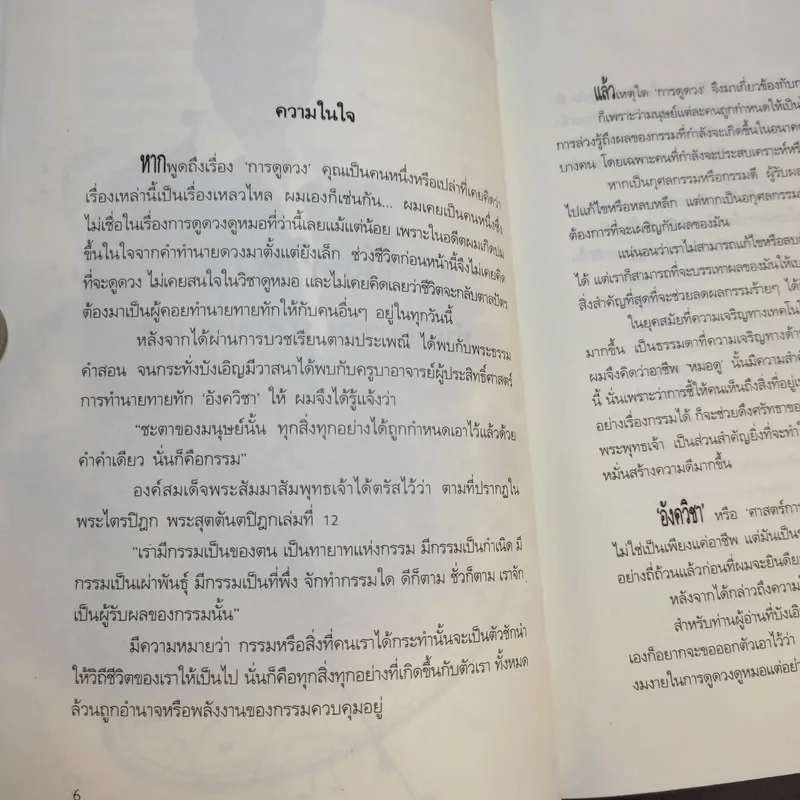 ความในใจ
หากพูดถึงเรื่อง 'การดูดวง' คุณเป็นคนหนึ่งหรือเปล่าที่เคยคิดว่า
เรื่องเหล่านี้เป็นเรื่องเหลวไหล ผมเองก็เช่นกัน... ผมเคยเป็นคนหนึ่งซึ่ง
ไม่เชื่อในเรื่องการดูดวงดูหมอที่ว่านี้เลยแม้แต่น้อย เพราะในอดีตผมเกิดปม
ขึ้นในใจจากคำทำนายดวงมาตั้งแต่ยังเล็ก ช่วงชีวิตก่อนหน้านี้จึงไม่เคยคิด
ที่จะดูดวง ไม่เคยสนใจในวิชาดูหมอ และไม่เคยคิดเลยว่าชีวิตจะกลับตาลปัตร
ต้องมาเป็นผู้คอยทำนายทายทักให้กับคนอื่นๆ อยู่ในทุกวันนี้
หลังจากได้ผ่านการบวชเรียนตามประเพณี ได้พบกับพระธรรม
คำสอน จนกระทั่งบังเอิญมีวาสนาได้พบกับครูบาอาจารย์ผู้ประสิทธิ์ศาสตร์
การทำนายทายทัก 'อังควิชา' ให้ ผมจึงได้รู้แจ้งว่า
"ชะตาของมนุษย์นั้น ทุกสิ่งทุกอย่างได้ถูกกำหนดเอาไว้แล้วด้วย
คำคำเดียว นั่นก็คือกรรม"
องค์สมเด็จพระสัมมาสัมพุทธเจ้าได้ตรัสไว้ว่า ตามที่ปรากฏใน
พระไตรปิฎก พระสุตตันตปิฎกเล่มที่ 12
"เรามีกรรมเป็นของตน เป็นทายาทแห่งกรรม มีกรรมเป็นกำเนิด มี
กรรมเป็นเผ่าพันธุ์ มีกรรมเป็นที่พึ่ง จักทำกรรมใด ดีก็ตาม ชั่วก็ตาม เราจัก
เป็นผู้รับผลของกรรมนั้น"
มีความหมายว่า กรรมหรือสิ่งที่คนเราได้กระทำนั้นจะเป็นตัวชักนำ
ให้วิถีชีวิตของเราให้เป็นไป นั่นก็คือทุกสิ่งทุกอย่างที่เกิดขึ้นกับตัวเรา ทั้งหมด
ล้วนถูกอำนาจหรือพลังงานของกรรมควบคุมอยู่
6
แล้วเหตุใด 'การดูดวง' จึงมาเกี่ยวข้องกับก
ก็เพราะว่ามนุษย์แต่ละคนถูกกำหนดให้เป็น
การล่วงรู้ถึงผลของกรรมที่กำลังจะเกิดขึ้นในอนาค
บางคน โดยเฉพาะคนที่กำลังจะประสบเคราะห์หรื
หากเป็นกุศลกรรมหรือกรรมดี ผู้รับผล
ไปแก้ไขหรือหลบหลีก แต่หากเป็นอกุศลกรรม
ต้องการที่จะเผชิญกับผลของมัน
แน่นอนว่าเราไม่สามารถแก้ไขหรือลบล้
ได้ แต่เราก็สามารถที่จะบรรเทาผลของมันให้เบ
สิ่งสำคัญที่สุดที่จะช่วยลดผลกรรมร้ายๆ ได้
ในยุคสมัยที่ความเจริญทางเทคโน
มากขึ้น เป็นธรรมดาที่ความเจริญทางด้าน
ผมจึงคิดว่าอาชีพ 'หมอดู' นั้นมีความสำ
นี้ นั่นเพราะว่าการชี้ให้คนเห็นถึงสิ่งที่อยู่
อย่างเรื่องกรรมได้ ก็จะช่วยดึงศรัทธาของ
พระพุทธเจ้า เป็นส่วนสำคัญยิ่งที่จะทำใ
หมั่นสร้างความดีมากขึ้น
'อังควิชา' หรือ 'ศาสตร์การ
ไม่ใช่เป็นเพียงแค่อาชีพ แต่มันเป็น
อย่างถี่ถ้วนแล้วก่อนที่ผมจะยินดีย
หลังจากได้กล่าวถึงความใ
สำหรับท่านผู้อ่านที่บังเอิ
เองก็อยากจะขอออกตัวเอาไว้ว่า
งมงายในการดูดวงดูหมอแต่อย่า